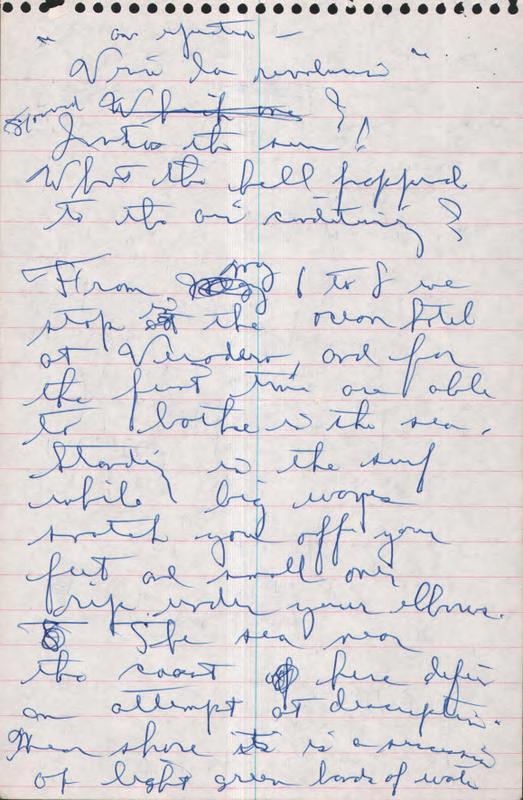 our question —
" Viva la revolucion "
Whip me ?
Juntos the sun !
What the hell happened
to the air conditioning ?
From my 1 to 8 we
stop at the ocean hotel
at Varadero, and for
the first time are able
to bathe in the sea.
Standing in the surf
while big waves
snatch you off your
feet and small ones
drip under your elbows.
The sea near
the coast here defies
an attempt at description.
Near shore it is a succession
of light green bands of water